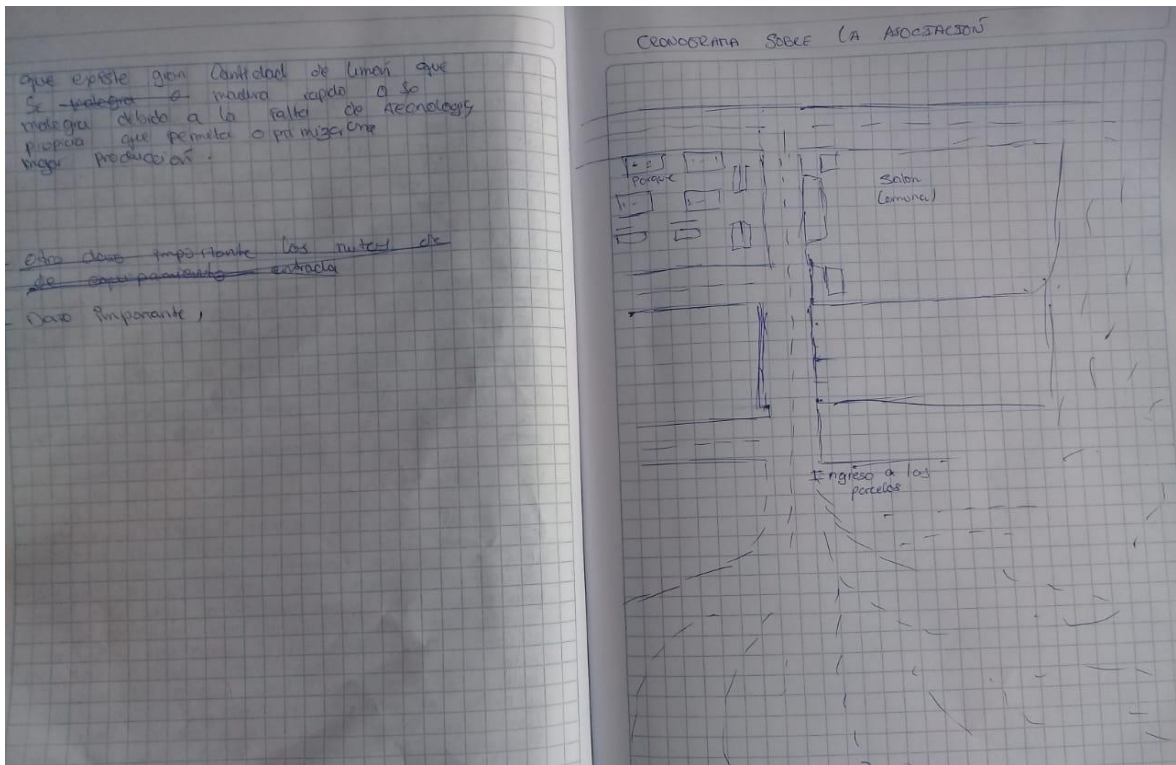 que existe gran Cantidad de limon que
Se malogra o madura rapido o se
malogra debido a la falta de tecnologia
propicia que permita optimizar una
mejor produccion.
- otro dato importante las rutas de
de entrada
- Dato importante,
CRONOGRAMA SOBRE LA ASOCIACION
Parque
Salon
Comunal
Ingreso a las
parcelas